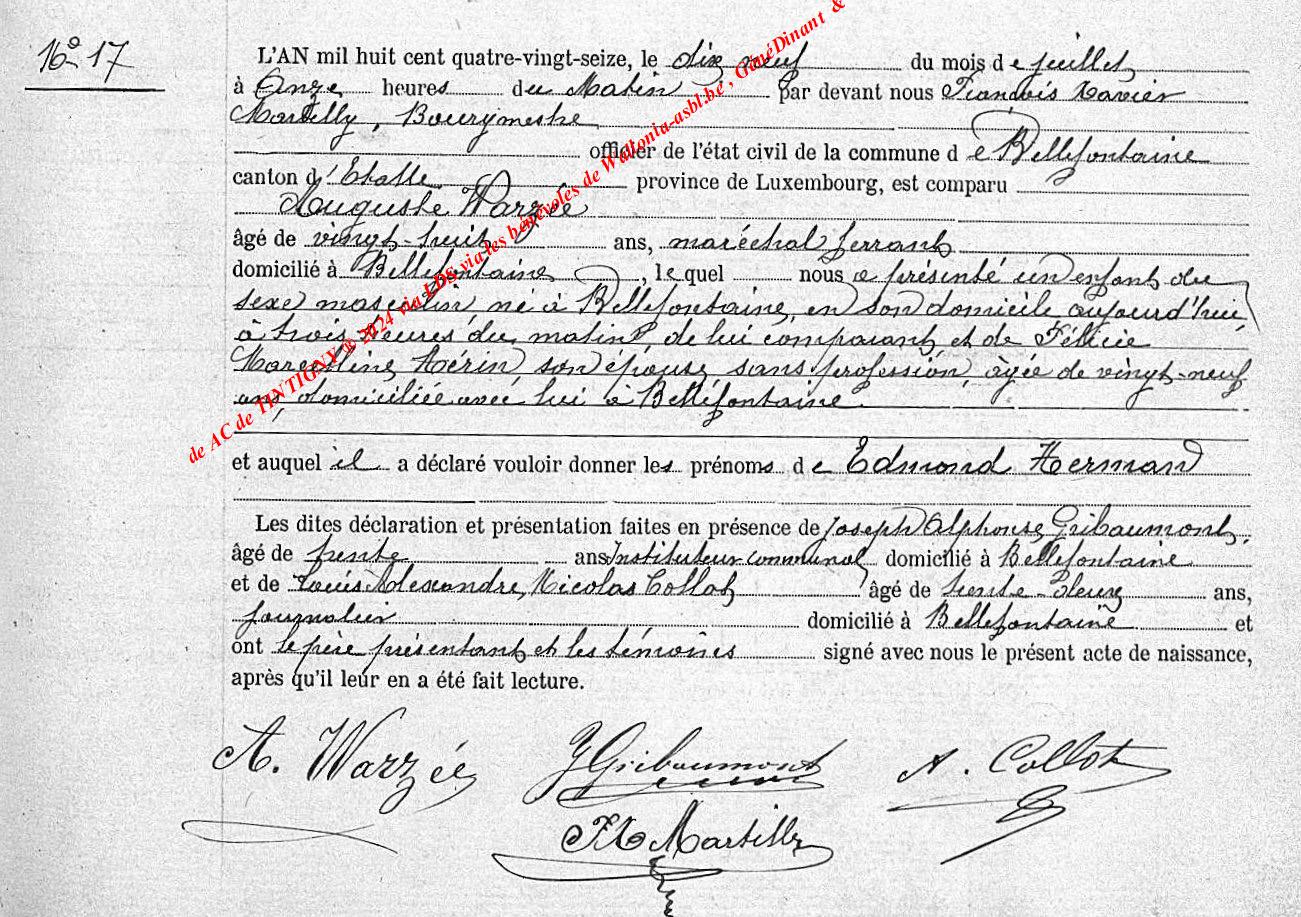 N° 17
L'AN mil huit cent quatre-vingt-seize, le dix neuf du mois de juillet
à Onze heures du Matin par devant nous François Xavier
Martilly, Bourgmestre
officier de l'état civil de la commune de Bellefontaine
canton d'Etalle province de Luxembourg, est comparu
Auguste Warzée
âgé de vingt-huit ans, maréchal ferrant
domicilié à Bellefontaine, lequel nous a présenté un enfant du
sexe masculin, né à Bellefontaine, en son domicile aujourd'hui,
à trois heures du matin, de lui comparant et de Félicie
Marcelline Hérin son épouse sans profession, âgée de vingt-neuf
ans, domiciliée avec lui à Bellefontaine.
et auquel il a déclaré vouloir donner les prénoms de Edmond Herman
Les dites déclaration et présentation faites en présence de Joseph Alphonse Gribaumont,
âgé de trente ans Instituteur communal domicilié à Bellefontaine
et de Louis Alexandre, Nicolas Collot âgé de trente-deux ans,
journalier domicilié à Bellefontaine et
ont le père présentant et les témoins signé avec nous le présent acte de naissance,
après qu'il leur en a été fait lecture.
A. Warzée J Gribaumont A. Collot
FX Martilly
de AC de TINTIGNY © 2024 via LDS via les bénévoles de Wallonia-asbl.be , GénéDinant &